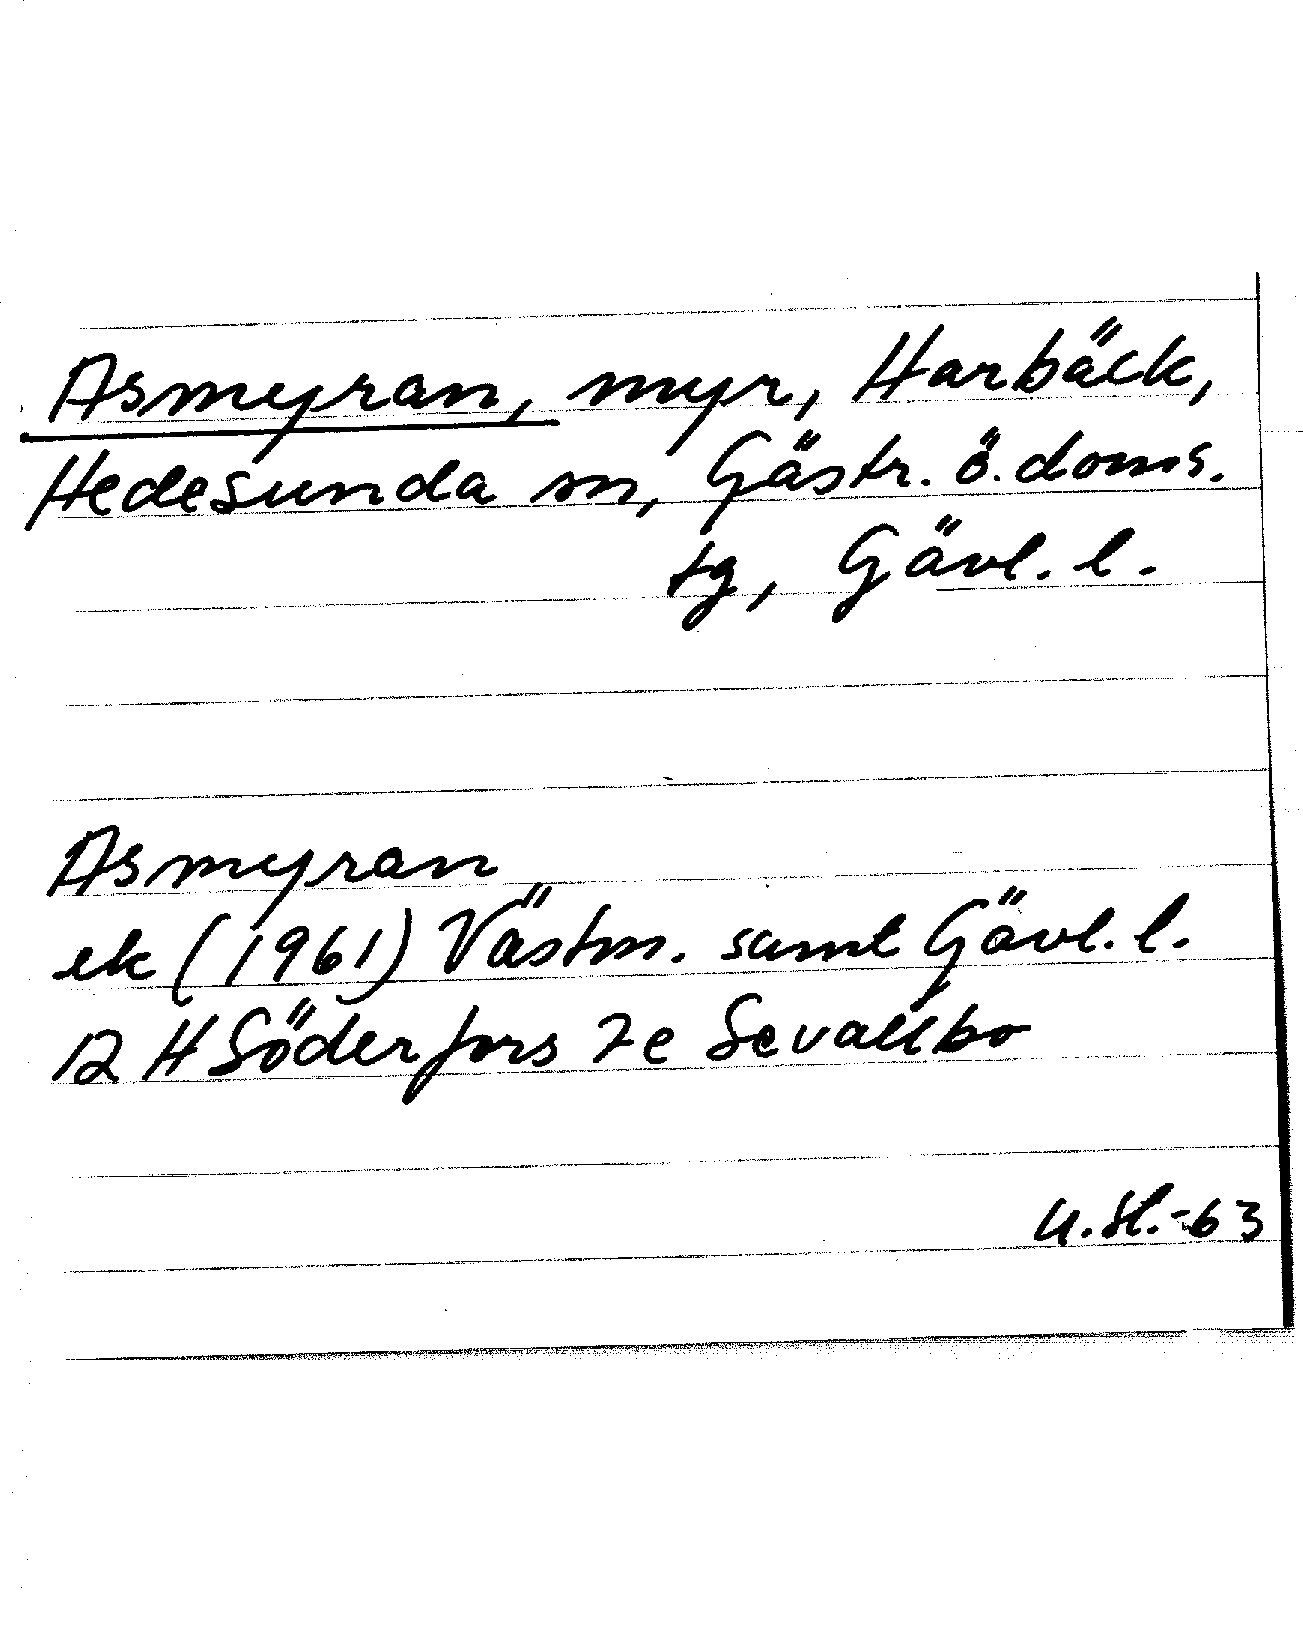 Asmyran, myr, Harbäck,
Hedesunda sn, Gästr. ö. doms.
tg, Gävl. l.
Asmyran
ek (1961) Västm. samt Gävl. l.
12 H Söderfors 7e Sevallbo
U. Sl.-63